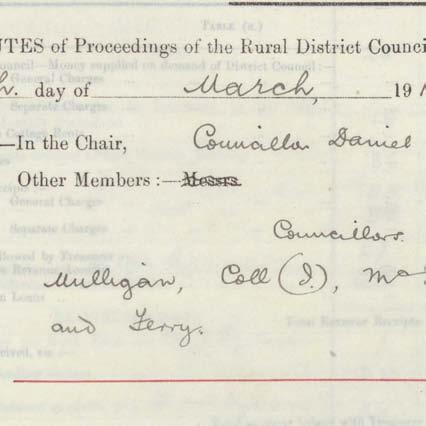 UTES of Proceedings of the Rural District Counci
h. day of March, 191
—In the Chair, Councillor Daniel
Other Members :—Messrs.
Councillors.
Mulligan, Coll (J.), Mc
and Ferry.